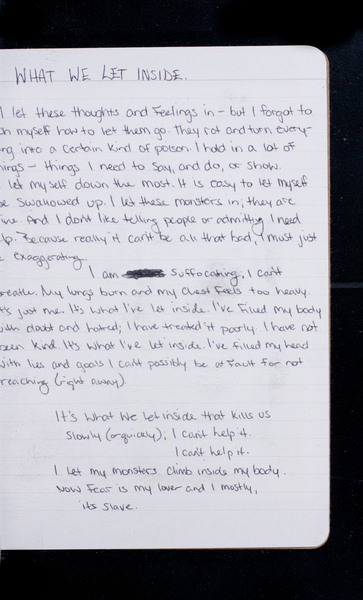 WHAT WE LET INSIDE.
I let these thoughts and feelings in - but I forgot to
ch myself how to let them go. They rot and turn every-
ng into a certain kind of poison. I hold in a lot of
hings - things I need to say, and do, or show.
I let myself down the most. It is easy to let myself
be swallowed up. I let these monsters in, they are
ine. And I don't like telling people or admitting I need
lp. Because really it can't be all that bad, I must just
e exaggerating.
I am suffocating, I can't
reathe. My lungs burn and my chest feels too heavy.
t's just me. It's what I've let inside. I've filled my body
with doubt and hatred; I have treated it poorly. I have not
been kind. It's what I've let inside. I've filled my head
with lies and goals I can't possibly be at fault for not
reaching (right away).
It's what we let inside that kills us
slowly (or quickly); I can't help it.
I can't help it.
I let my monsters climb inside my body.
Now fear is my lover and I mostly,
its slave.